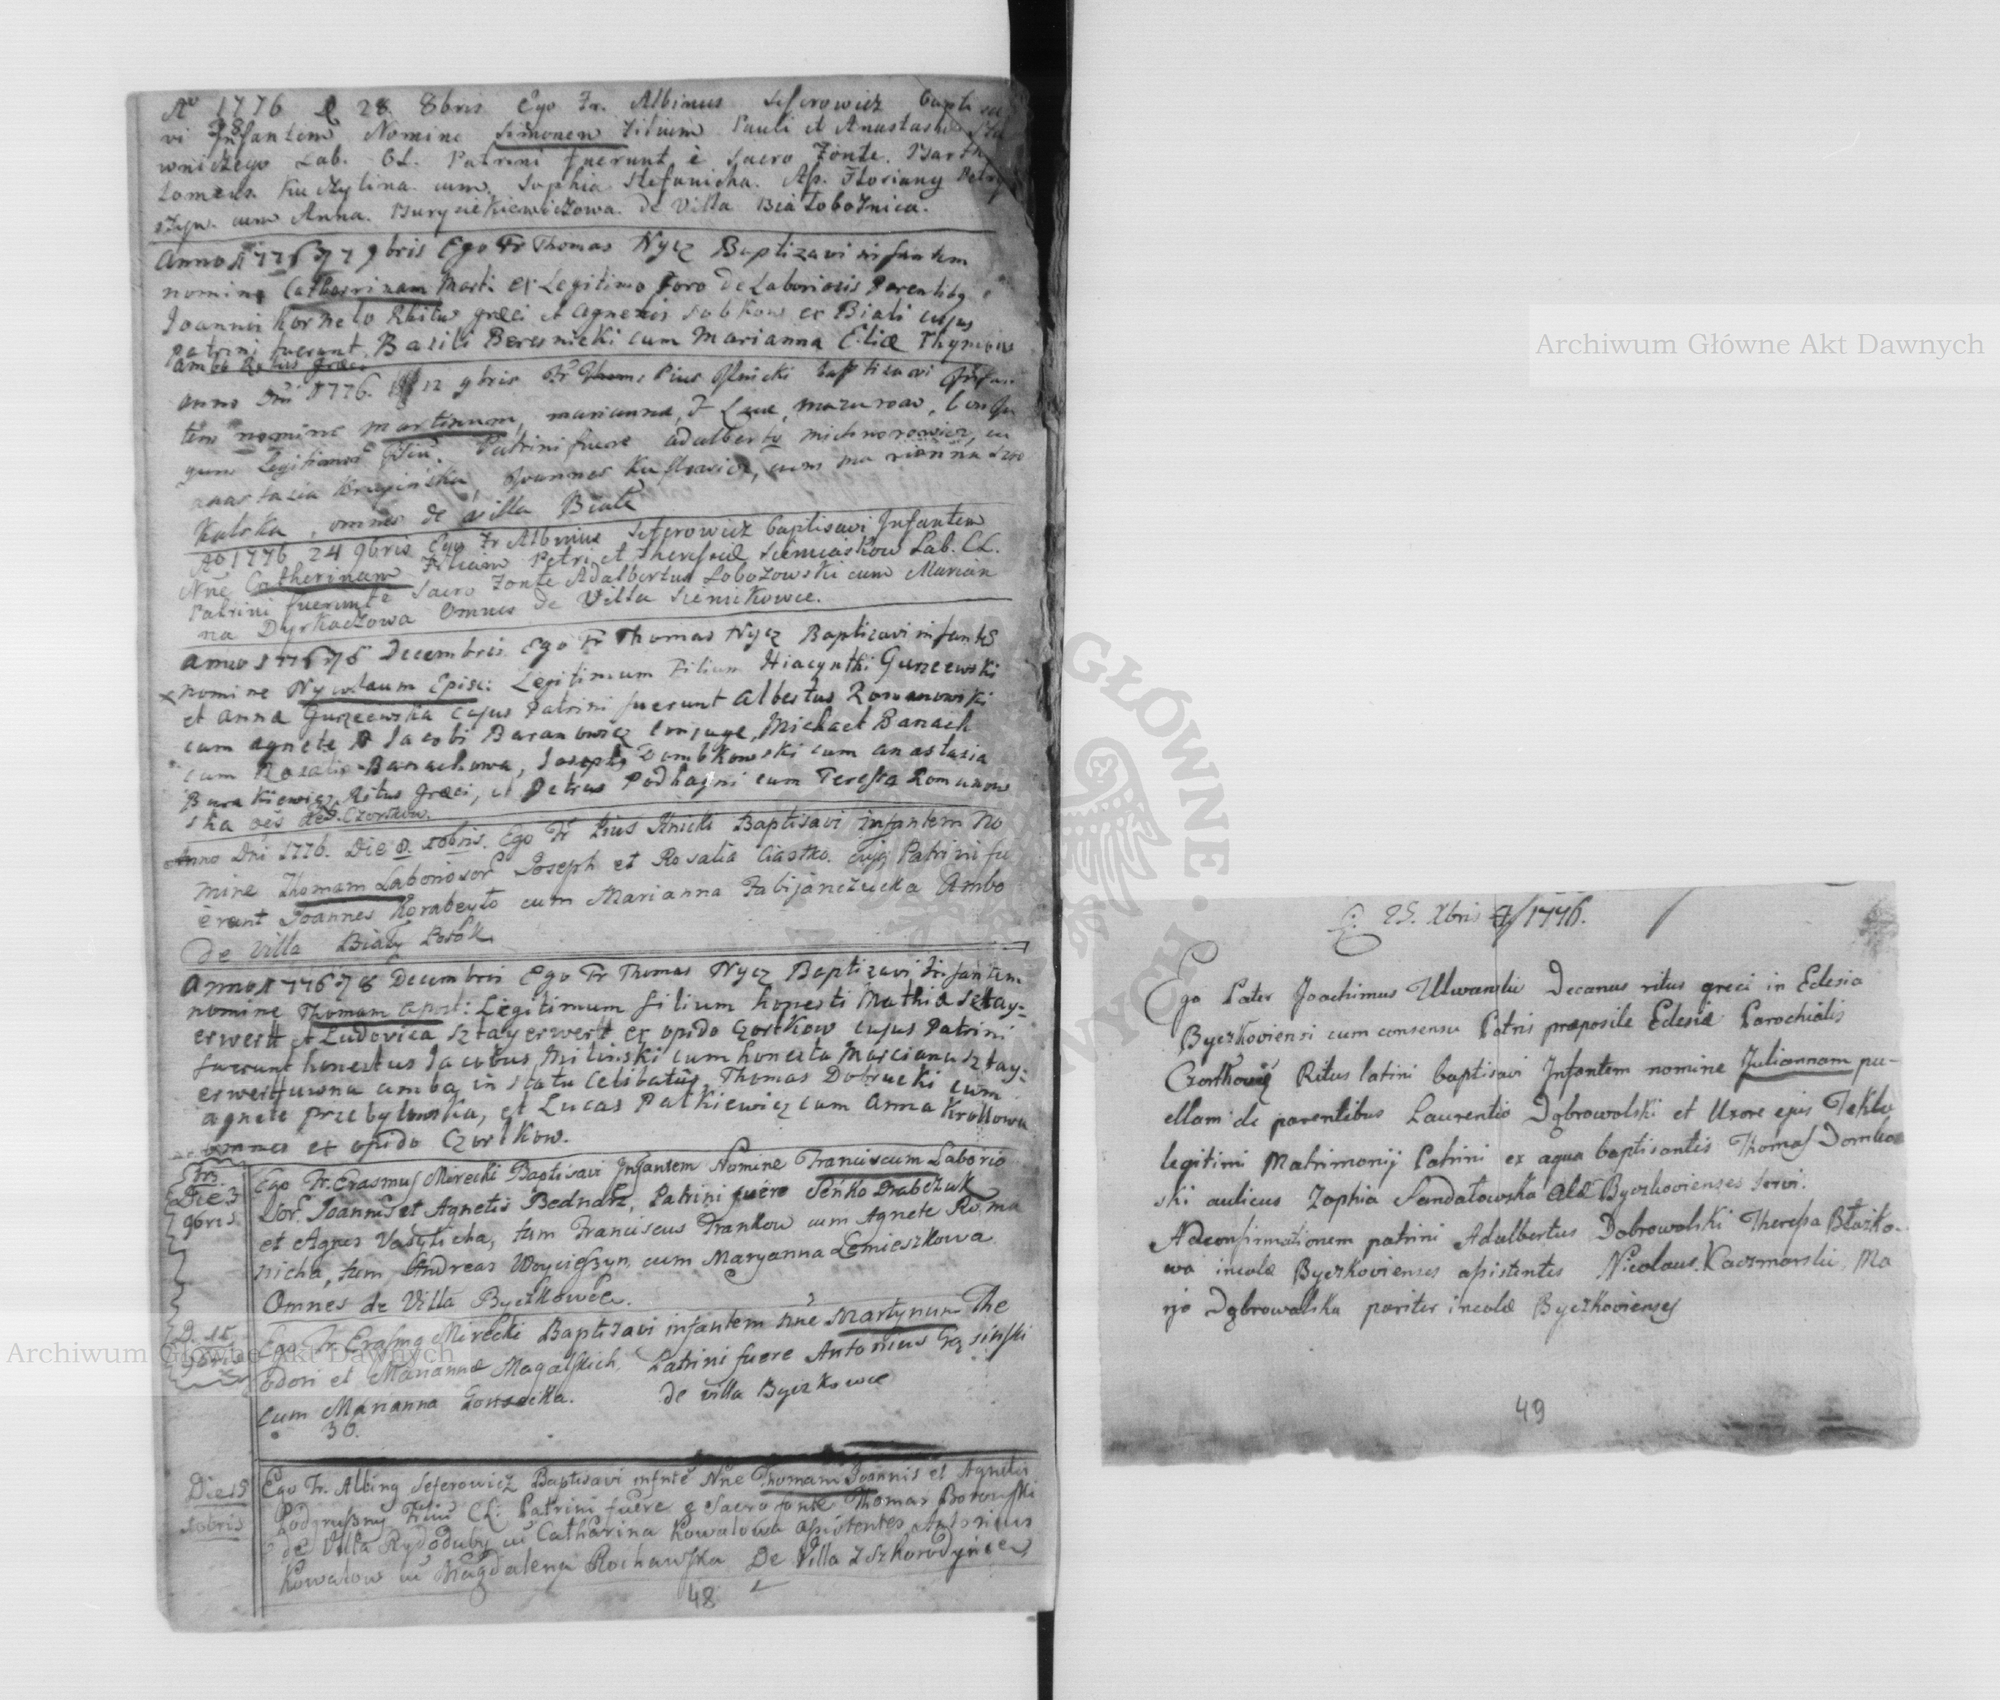 Aº 1776 D 28 8bris Ego Fr. Albinus Seferowicz Baptisa
vi Infantem Nomine Simonem Filium Pauli et Anastasia
wniczego Lab. CL. Patrini fuerunt è Sacro Fonte. Bartho
lomeus Kuczylina cum Sophia Stefanicha. As. Floriany
cum Anna Burysiekiewiczowa de Villa Białobożnica.
Anno D 1776 7 9bris Ego Fr Thomas Nycz Baptizavi infantem
nomine Catharinam Mart. ex Legitimo Toro de Laboriosis Parentibq
Joannis Korneto Ritus græci et Agnetis Sobkow ex Biali cujus
Patrini fuerunt Basili Beresnicki cum Marianna Eliæ Thymois
ambo Ritus Græci
Anno Dni 1776. 12 9bris Fr Pius Ilnicki baptisavi Infan
tem nomine Martinum, marianna, & Luc, mazurow, Conju
gum Legitimor Filiu. Patrini fuere adalberty michnorowicz, cu
anastazia Krupinska, Joannes Kuslewicz, cum marianna Szo
kalska, omnes de villa Biała
Aº 1776 24 9bris Ego Fr Albinus Seferowicz baptisavi Infantem
Nñe Catherinam Filiam Petri et Theressæ Siemiaskow Lab. CL.
Patrini fuerunt è Sacro Fonte Adalbertus Lobozowski cum Marian
na Dyrkaczowa Omnes de Villa Siemikowce.
Anno D 1776 6 Decembris Ego Fr Thomas Nycz Baptizavi infantē
nomine Nycolaum Episc: Legitimum Filium Hiacynthi Gurzewski
et Anna Gurzeewska cujus Patrini fuerunt Albertus Romanowski
cum agnete D Jacobi Baranowicz Conjuge, Michael Banach
cum Rosalia Banachowa, Joseph Dombkowski cum anastasia
Burakiewicz Ritus Græci, et Petrus Podhajni cum Teressa Romanow
ska oēs de Czortkow.
Anno Dni 1776. Die 8. xobris. Ego Fr Pius Ilnicki Baptisavi infantem No
mine Thomam Laboriosor Joseph et Rosalia Ciastko. cujq Patrini fu
erunt Joannes Korabeyło cum Marianna Fabijanczucka Ambo
de Villa Biały Potok
Anno D 1776 8 Decembris Ego Fr Thomas Nycz Baptizavi Infantem
nomine Thomam Apost: Legitimum filium honesti Mathiæ Sztay-
erwert et Ludovica Sztayerwert ex opido Czortkow cujus Patrini
fuerunt honestus Jacobus Milinski cum honesta Marciana Sztay:
erwertuwna ambo in statu Celibatus, Thomas Dobrucki cum
agnete Przebylowska, et Lucas Patkiewicz cum Anna Krollowa
omnes ex opido Czortkow.
Die 3
9bris
Ego Fr. Erasmus Mirecki Baptisavi Infantem Nomine Franciscum Laborio
sor. Joannis et Agnetis Bednarz, Patrini fuere Seńko Drabczuk
et Agnes Vasylicha, tum Franciscus Frankow cum Agnete Roma
nicha, tum Andreas Woyciessyn cum Maryanna Lemieszkowa
Omnes de Villa Byczkowce.
D. 15
9bris
Ego Fr. Erasmq Mirecki Baptisavi infantem Nne Martynum The
odori et Marianna Magalskich. Patrini fuere Antonius Gąsinski
cum Marianna Gonsecka. de villa Byczkowce
30.
Die 15
xobris
Ego Fr. Albinq Seferowicz Baptisavi infntē Nñe Thomam Joannis et Agnetis
Podgrusny Filiu CL: Patrini fuere e Sacro fonte Thomas Borowski
de Villa Rydoduby cu Catharina Kowalowa assistentes Antonius
Kowalow cu Magdalena Rochawska De Villa Zszkorodyńce
48
D: 25. Xbris A 1776.
Ego Pater Joachimus Ulwanski Decanus ritus greci in Eclesia
Byczkoviensi cum consensu Patris præposite Eclesiæ Parochialis
Czortkoviē Ritus latini baptisavi Infantem nomine Juliannam pu-
ellam de parentibus Laurentio Dąbrowolski et Uxore ejus Teklo
legitimi Matrimonij Patrini ex aqua baptisantis Thomas Dombro
ski aulicus Zophia Sandałowska Alæ Byczkovienses servi.
Ad confirmationem patrini Adalbertus Dobrowolski Theressa Błażko-
wa incolæ Byczkovienses assistentes Nicolaus Kaczmarski, Ma
rja Dąbrowalska pariter incolæ Byczkovienses
49
Archiwum Główne Akt Dawnych
Archiwum Główne Akt Dawnych